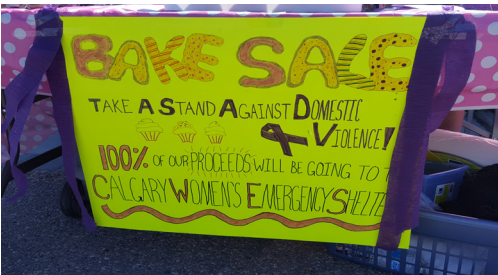 BAKE SALE
TAKE A STAND AGAINST DOMESTIC
VIOLENCE!
100% OF OUR PROCEEDS WILL BE GOING TO
CALGARY WOMEN'S EMERGENCY SHELTE